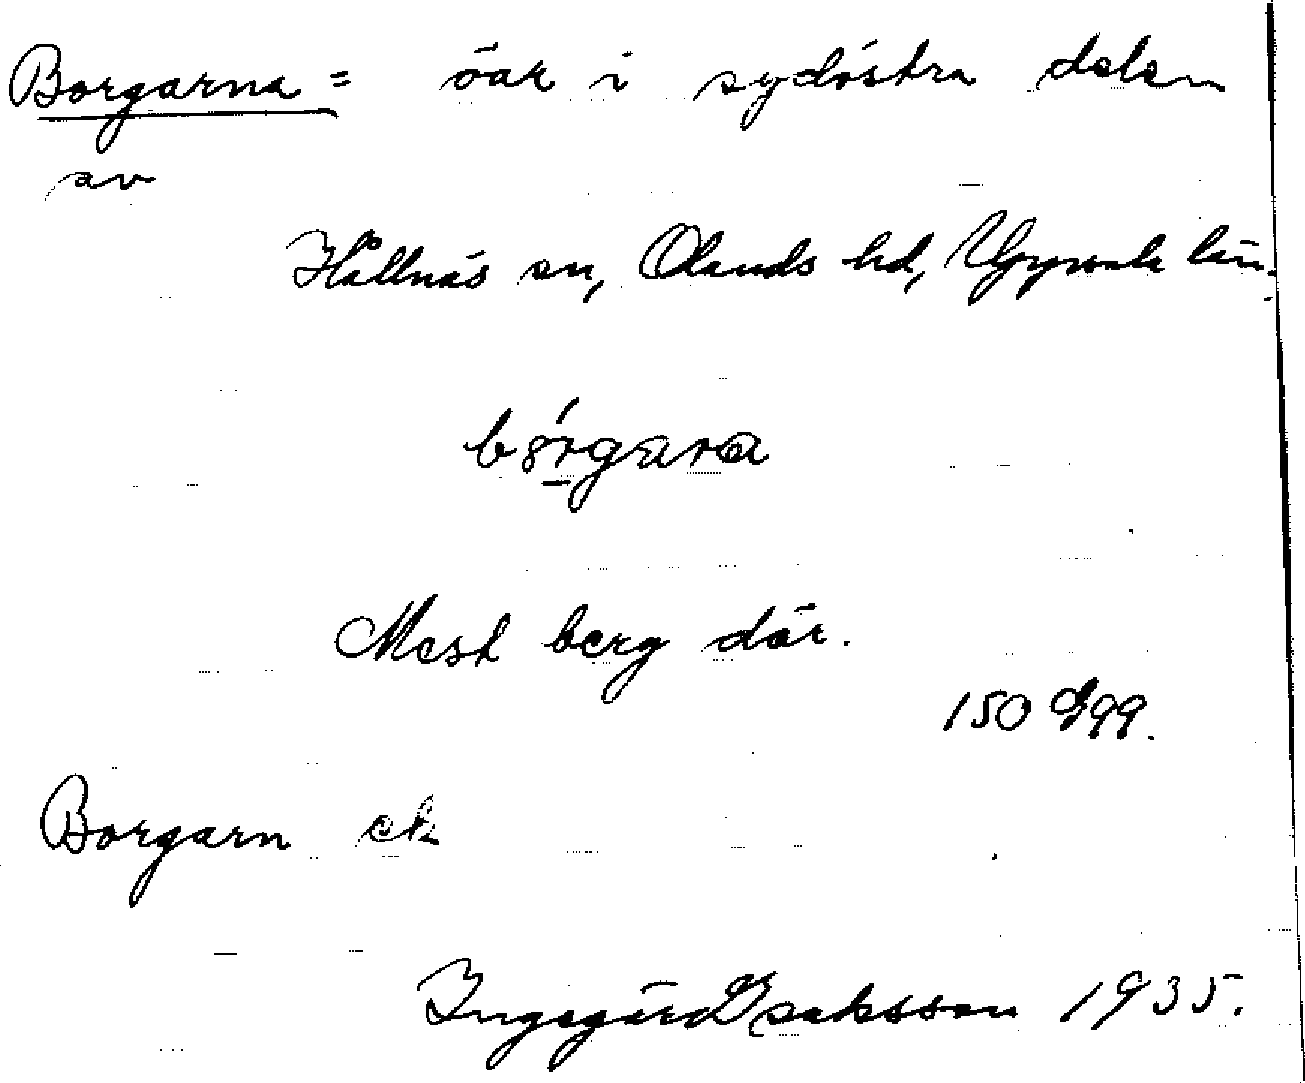 Borgarna = öar i sydöstra delen
av
Hållnäs sn, Olands hd, Uppsala län.
börgara
Mest berg där.
150 G 99.
Borgarn ek
Ingegärd Isaksson 1935.